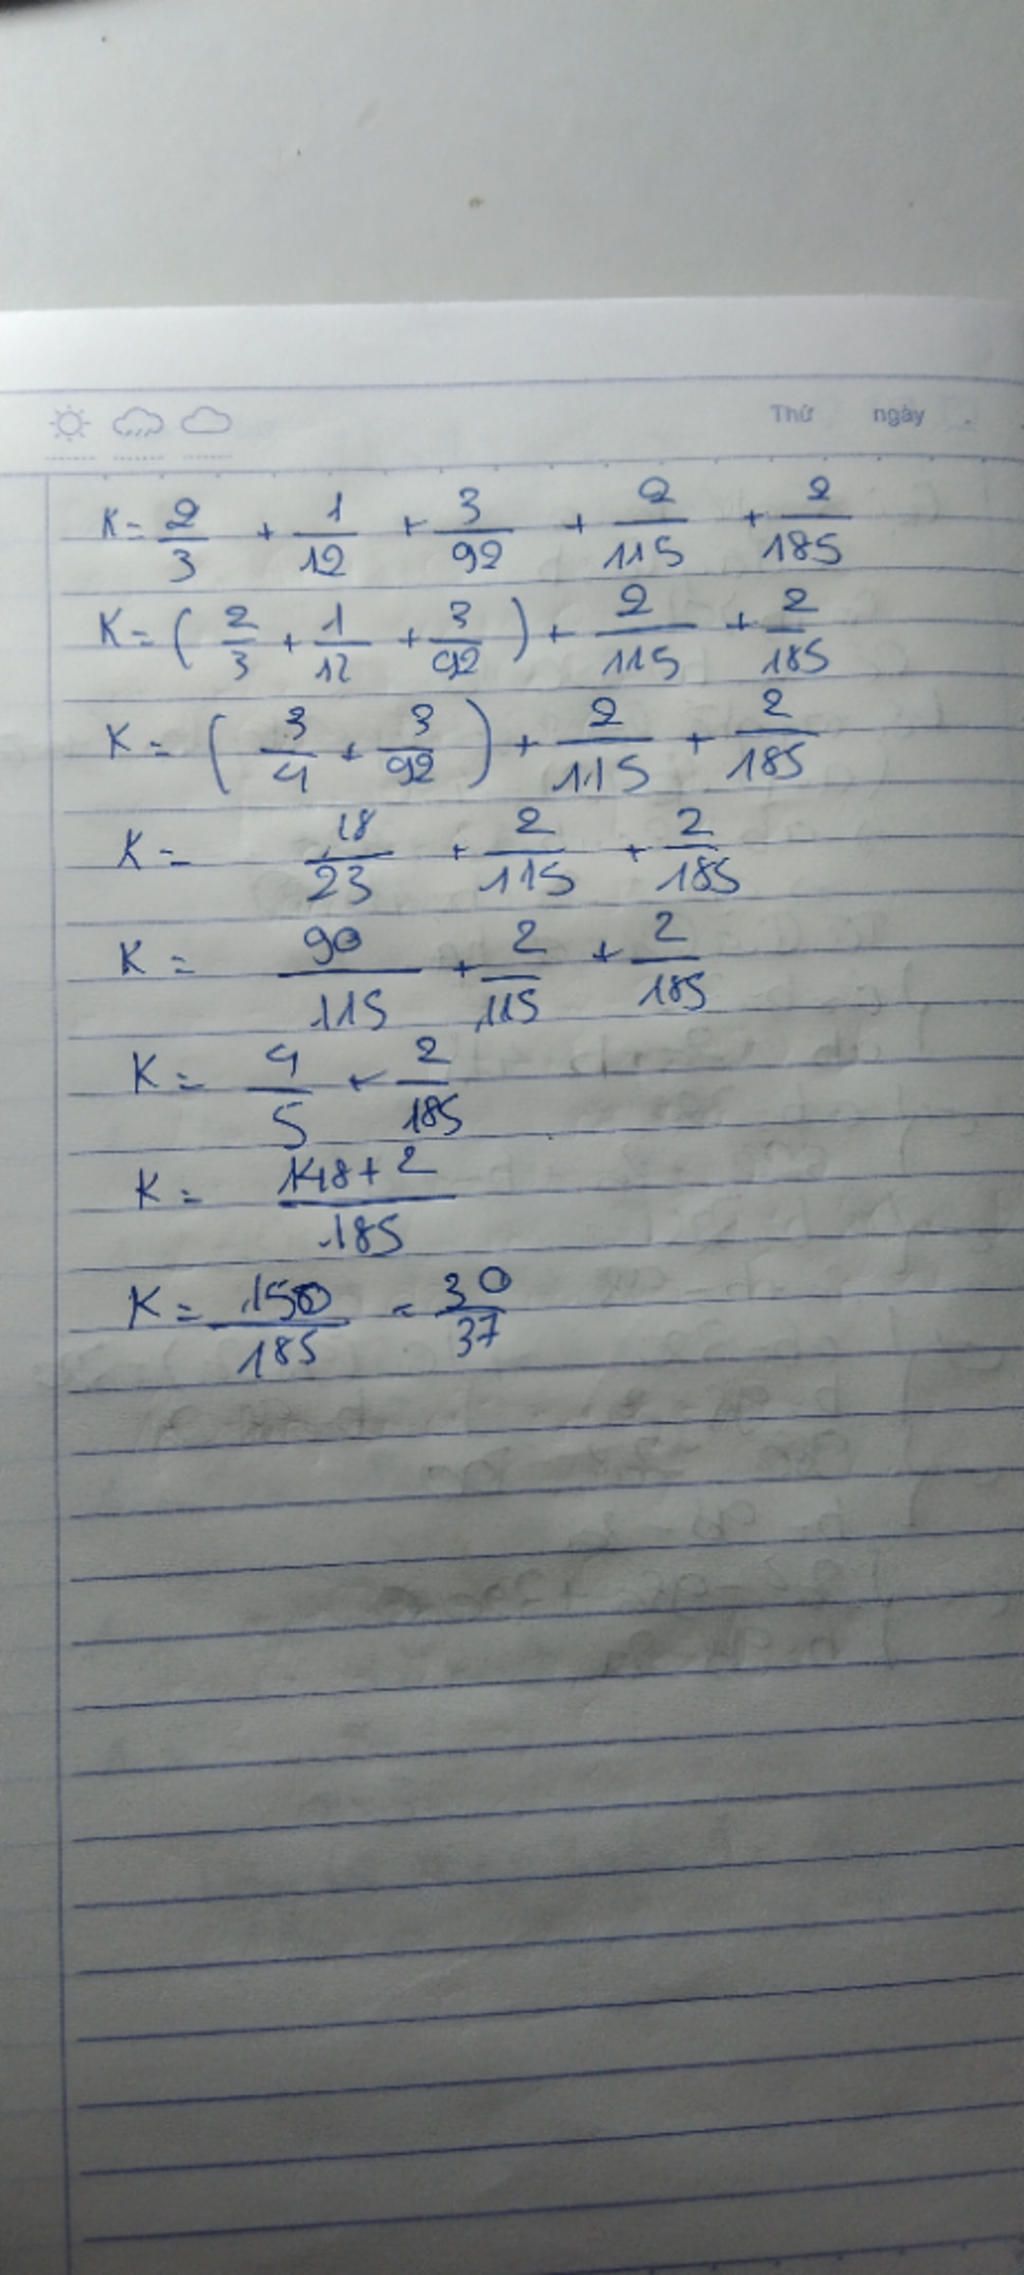 Thứ ngày
K = 2/3 + 1/12 + 3/92 + 2/115 + 2/185
K = ( 2/3 + 1/12 + 3/92 ) + 2/115 + 2/185
K = ( 3/4 + 3/92 ) + 2/115 + 2/185
K = 18/23 + 2/115 + 2/185
K = 90/115 + 2/115 + 2/185
K = 4/5 + 2/185
K = 148+2/185
K = 150/185 = 30/37